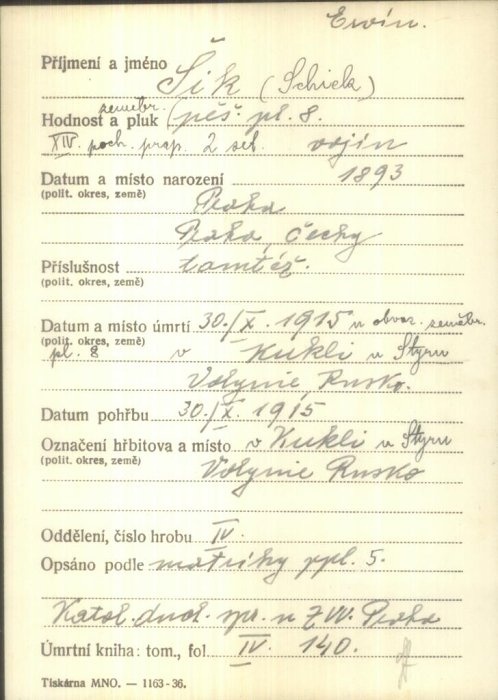 Ervín.
Příjmení a jméno Šik (Schick)
zeměbr.
Hodnost a pluk (pěš. pl. 8.
XIV. poch. prap. 2 set. vojín
Datum a místo narození 1893
(polit. okres, země) Praha
Praha, Čechy
Příslušnost tamtéž.
(polit. okres, země)
Datum a místo úmrtí 30./X. 1915 u obvaz. zeměbr.
(polit. okres, země)
pl. 8 v Kukli u Styru
Volynie, Rusko.
Datum pohřbu 30./X. 1915
Označení hřbitova a místo v Kukli u Styru
(polit. okres, země) Volynie Rusko
Oddělení, číslo hrobu IV.
Opsáno podle matriky ppl. 5.
Katol. duch. spr. u ZVV. Praha
Úmrtní kniha: tom., fol. IV. 140.
Tiskárna MNO. — 1163-36.